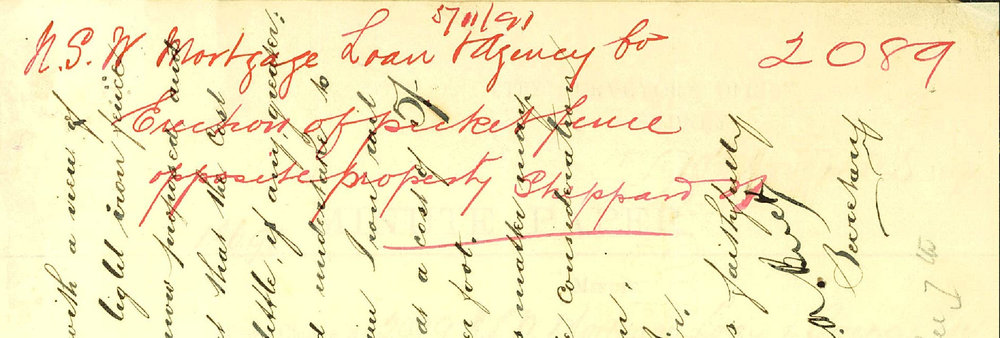 5/11/91
N. S. W Mortgage Loan & Agency Co
2089
Erection of picket fence
opposite property Sheppard St
with a view of
light iron fence
now proposed and
that the cost
little, if any greater.
undertake to
Iron rail
at a cost of
foot.
matter may
consideration
faithfully
Secretary